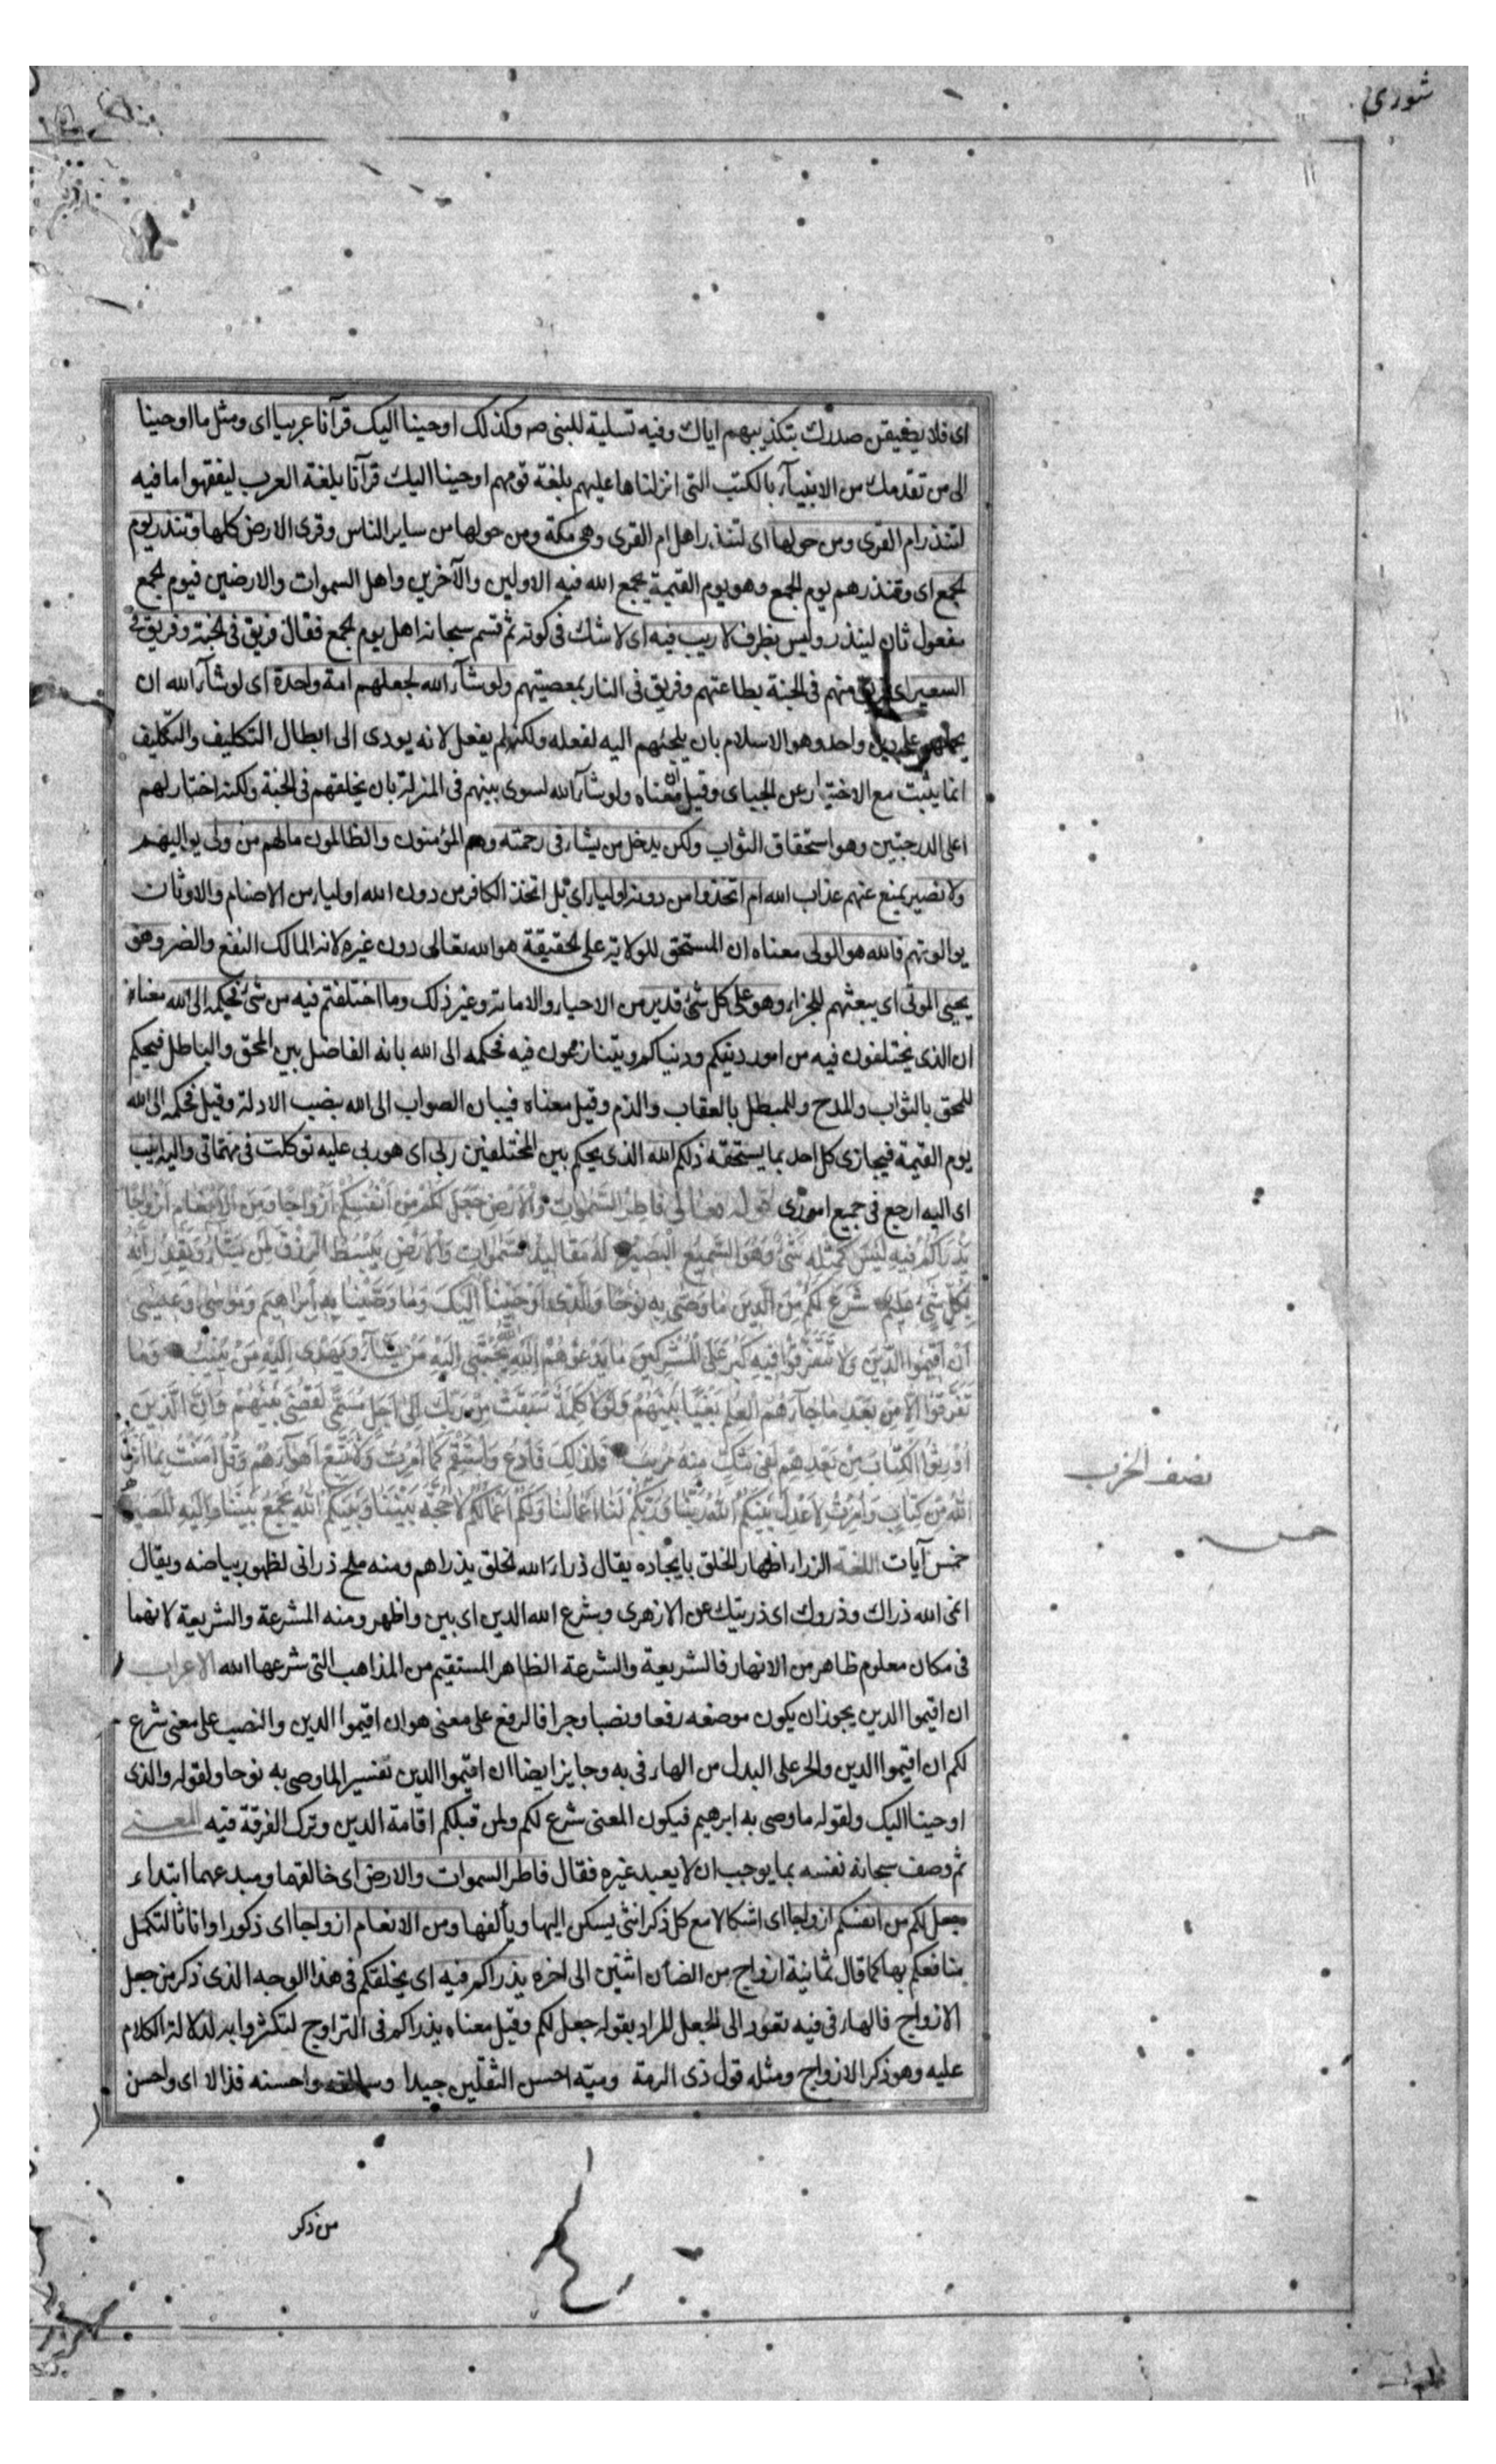 شورى
اى فلا يضيقن صدرك بتكذيبهم اياك وفيه تسلية للنبى صه وكذلك اوحينا اليك قرآنا عربيا اى ومثل ما اوحينا
الى من تقدمك من الانبيآء بالكتب التى انزلناها عليهم بلغة قومهم اوحينا اليك قرآنا بلغة العرب ليفقهوا ما فيه
لتنذر ام القرى ومن حولها اى لتنذر اهل ام القرى وهى مكة ومن حولها من ساير الناس وقرى الارض كلها وتنذر يوم
الجمع اى وتنذرهم يوم الجمع وهو يوم القيمة يجمع الله فيه الاولين والآخرين واهل السموات والارضين فيوم الجمع
مفعول ثان لينذر وليس بظرف لا ريب فيه اى لا شك فى كونه ثم قسم سبحانه اهل يوم الجمع فقال فريق فى الجنة وفريق فى
السعير اى فريق منهم فى الجنة بطاعتهم وفريق فى النار بمعصيتهم ولو شآء الله لجعلهم امة واحدة اى لو شآء الله ان
يحملهم على دين واحد وهو الاسلام بان يلجئهم اليه لفعله ولكنه لم يفعل لانه يودى الى ابطال التكليف والتكليف
انما يثبت مع الاختيار عن الجبياى وقيل ان معناه ولو شآء الله لسوى بينهم فى المنزلة بان يخلقهم فى الجنة ولكنه اختار لهم
اعلى الدرجتين وهو استحقاق الثواب ولكن يدخل من يشاء فى رحمته وهم المؤمنون والظالمون مالهم من ولى يواليهم
ولا نصير يمنع عنهم عذاب الله ام اتخذوا من دونه اولياء اى بل اتخذ الكافر من دون الله اولياء من الاصنام والاوثان
يوالونهم فالله هو الولى معناه ان المستحق للولاية على الحقيقة هو الله تعالى دون غيره لانه المالك النفع والضر وهو
يحيى الموتى اى يبعثهم للجزاء وهو على كل شئ قدير من الاحياء والاماتة وغير ذلك وما اختلفتم فيه من شئ فحكمه الى الله معناه
ان الذى تختلفون فيه من امور دينكم ودنياكم ويتنازعون فيه فحكمه الى الله بانه الفاضل بين المحق والباطل فيحكم
للمحق بالثواب والمدح وللمبطل بالعقاب والذم وقيل معناه فبيان الصواب الى الله بنصب الادلة وقيل فحكمه الى الله
يوم القيمة فيجازى كل احد بما يستحقه ذلكم الله الذى يحكم بين المختلفين ربى اى هو ربى عليه توكلت فى مهماتى واليه انيب
اى اليه ارجع فى جميع امورى قوله تعالى فاطر السموات والارض جعل لكم من انفسكم ازواجا ومن الانعام ازواجا
يذرأكم فيه ليس كمثله شئ وهو السميع البصير له مقاليد السموات والارض يبسط الرزق لمن يشآء ويقدر انه
بكل شئ عليم شرع لكم من الدين ما وصى به نوحا والذى اوحينا اليك وما وصينا به ابراهيم وموسى وعيسى
ان اقيموا الدين ولا تتفرقوا فيه كبر على المشركين ما يدعوهم اليه الله يجتبى اليه من يشآء ويهدى اليه من ينيب وما
تفرقوا الا من بعد ما جآءهم العلم بغيا بينهم ولولا كلمة سبقت من ربك الى اجل مسمى لقضى بينهم وان الذين
اورثوا الكتاب من بعدهم لفى شك منه مريب فلذلك فادع واستقم كما امرت ولا تتبع اهوآءهم وقل آمنت بما انزل
الله من كتاب وامرت لاعدل بينكم الله ربنا وربكم لنا اعمالنا ولكم اعمالكم لا حجة بيننا وبينكم الله يجمع بيننا واليه المصير
نصف الحزب
خمس آيات اللغة الزراء اظهار الخلق بايجاده يقال ذراء الله الخلق يذراهم ومنه ملح ذرانى لظهور بياضه ويقال
انمى الله ذراك وذروك اى ذريتك عن الازهرى وشرع الله الدين اى بين واظهر ومنه المشرعة والشريعة لانهما
فى مكان معلوم ظاهر من الانهار فالشريعة والشرعة الظاهر المستقيم من المذاهب التى شرعها الله الاعراب
ان اقيموا الدين يجوز ان يكون موضعه رفعا ونصبا وجرا فالرفع على معنى هو ان اقيموا الدين والنصب على معنى شرع
لكم ان اقيموا الدين والجر على البدل من الهاء فى به وجايز ايضا ان اقيموا الدين تفسير الما وصى به نوحا ولقوله والذى
اوحينا اليك ولقوله ما وصى به ابرهيم فيكون المعنى شرع لكم ولمن قبلكم اقامة الدين وترك الفرقة فيه المعنى
ثم وصف سبحانه نفسه بما يوجب ان لا يعبد غيره فقال فاطر السموات والارض اى خالقهما ومبدعهما ابتداء
جعل لكم من انفسكم ازواجا اى اشكالا مع كل ذكر انثى يسكن اليها ويألفها ومن الانعام ازواجا اى ذكورا واناثا لتكمل
منافعكم بها كما قال ثمانية ازواج من الضان اثنين الى اخره يذراكم فيه اى يخلقكم فى هذا الوجه الذى ذكر من جعل
الازواج فالهاء فى فيه تعود الى الجعل المراد بقوله جعل لكم وقيل معناه يذراكم فى التزاوج لتكثروا به لدلالة الكلام
عليه وهو ذكر الازواج ومثله قول ذى الرمة وميّة احسن الثقلين جيدا وسالفة واحسنه قذالا اى واحسن
من ذكر